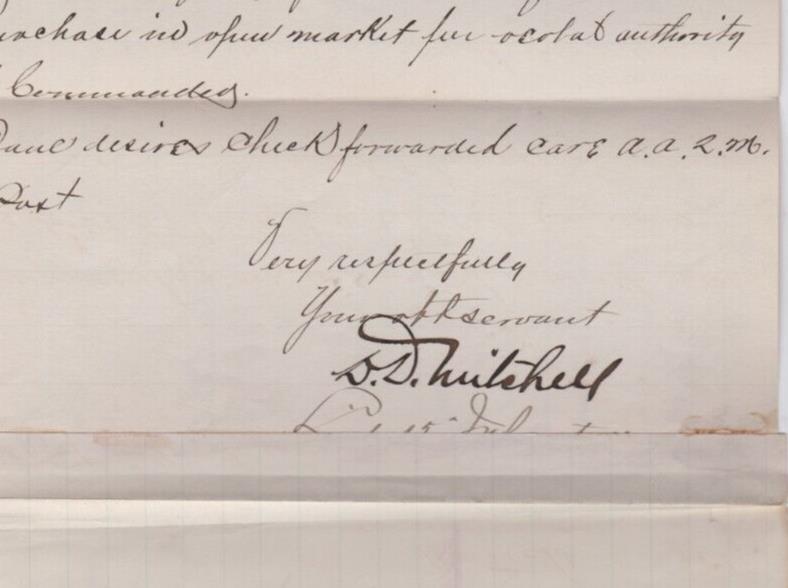 purchase in open market per verbal authority
Commanding.
Paul desires check forwarded care A.A.Q.M.
Post
Very respectfully
Your obt servant
D.D. Mitchell
15" Infantry